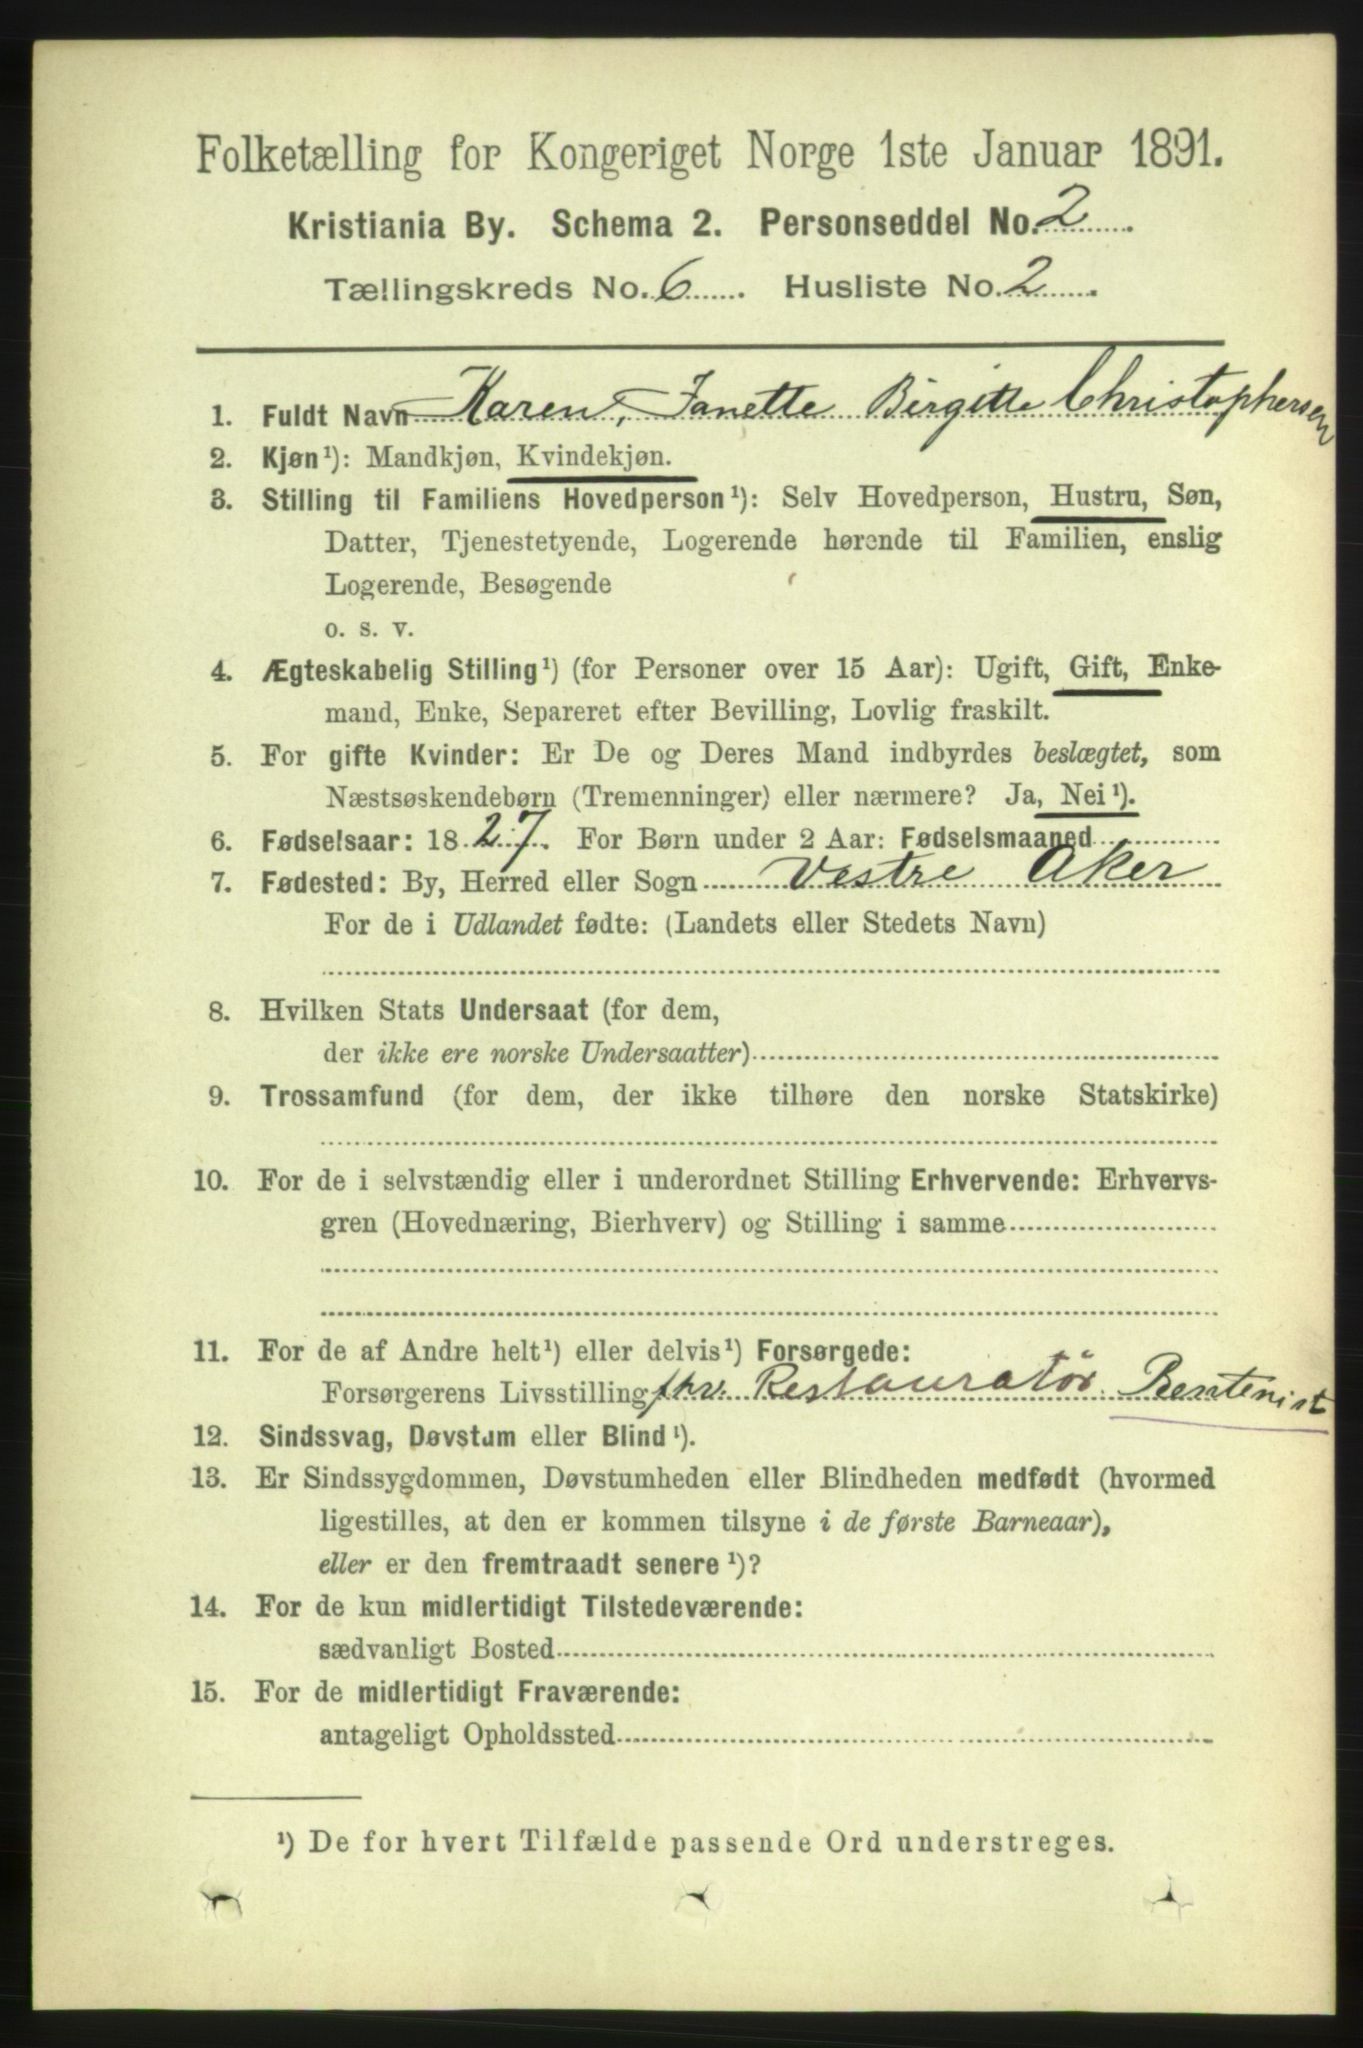 Folketælling for Kongeriget Norge 1ste Januar 1891.
Kristiania By. Schema 2. Personseddel No. 2
Tællingskreds No. 6 Husliste No. 2
1. Fuldt Navn Karen, Janette Birgitte Christophersen
2. Kjøn¹): Mandkjøn, Kvindekjøn.
3. Stilling til Familiens Hovedperson¹): Selv Hovedperson, Hustru, Søn,
Datter, Tjenestetyende, Logerende hørende til Familien, enslig
Logerende, Besøgende
o. s. v.
4. Ægteskabelig Stilling¹) (for Personer over 15 Aar): Ugift, Gift, Enke-
mand, Enke, Separeret efter Bevilling, Lovlig fraskilt.
5. For gifte Kvinder: Er De og Deres Mand indbyrdes beslægtet, som
Næstsøskendebørn (Tremenninger) eller nærmere? Ja, Nei¹).
6. Fødselsaar: 1827. For Børn under 2 Aar: Fødselsmaaned
7. Fødested: By, Herred eller Sogn Vestre Aker
For de i Udlandet fødte: (Landets eller Stedets Navn)
8. Hvilken Stats Undersaat (for dem,
der ikke ere norske Undersaatter)
9. Trossamfund (for dem, der ikke tilhøre den norske Statskirke)
10. For de i selvstændig eller i underordnet Stilling Erhvervende: Erhvervs-
gren (Hovednæring, Bierhverv) og Stilling i samme
11. For de af Andre helt¹) eller delvis¹) Forsørgede:
Forsørgerens Livsstilling fhv. Restauratør. Rentenist
12. Sindssvag, Døvstum eller Blind¹).
13. Er Sindssygdommen, Døvstumheden eller Blindheden medfødt (hvormed
ligestilles, at den er kommen tilsyne i de første Barneaar),
eller er den fremtraadt senere¹)?
14. For de kun midlertidigt Tilstedeværende:
sædvanligt Bosted
15. For de midlertidigt Fraværende:
antageligt Opholdssted
¹) De for hvert Tilfælde passende Ord understreges.